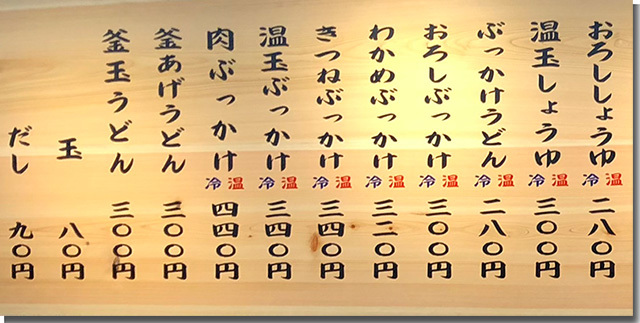 おろししょうゆ 冷 温 二八〇円
温玉しょうゆ 冷 温 三〇〇円
ぶっかけうどん 冷 温 二八〇円
おろしぶっかけ 冷 温 三〇〇円
わかめぶっかけ 冷 温 三二〇円
きつねぶっかけ 冷 温 三四〇円
温玉ぶっかけ 冷 温 三四〇円
肉ぶっかけ 冷 温 四四〇円
釜あげうどん 三〇〇円
釜玉うどん 三〇〇円
玉 八〇円
だし 九〇円